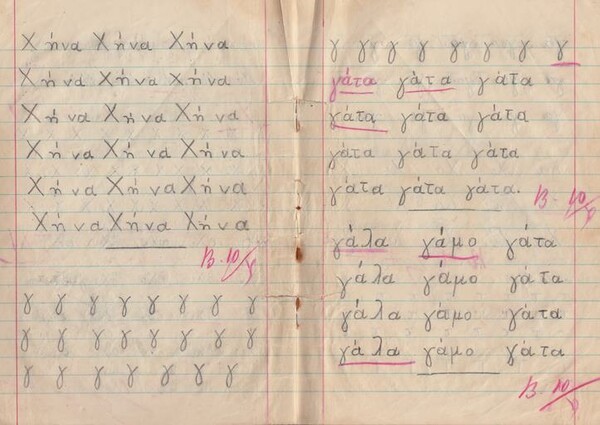 Χήνα Χήνα Χήνα
Χήνα Χήνα Χήνα
Χήνα Χήνα Χήνα
Χήνα Χήνα Χήνα
Χήνα Χήνα Χήνα
Χήνα Χήνα Χήνα
B. 10/
γ γ γ γ γ γ γ γ
γ γ γ γ γ γ γ γ
γ γ γ γ γ γ γ
γ γ γ γ γ γ γ γ
γάτα γάτα γάτα
γάτα γάτα γάτα
γάτα γάτα γάτα
γάτα γάτα γάτα.
B. 10/
γάλα γάμο γάτα
γάλα γάμο γάτα
γάλα γάμο γάτα
γάλα γάμο γάτα
B. 10/